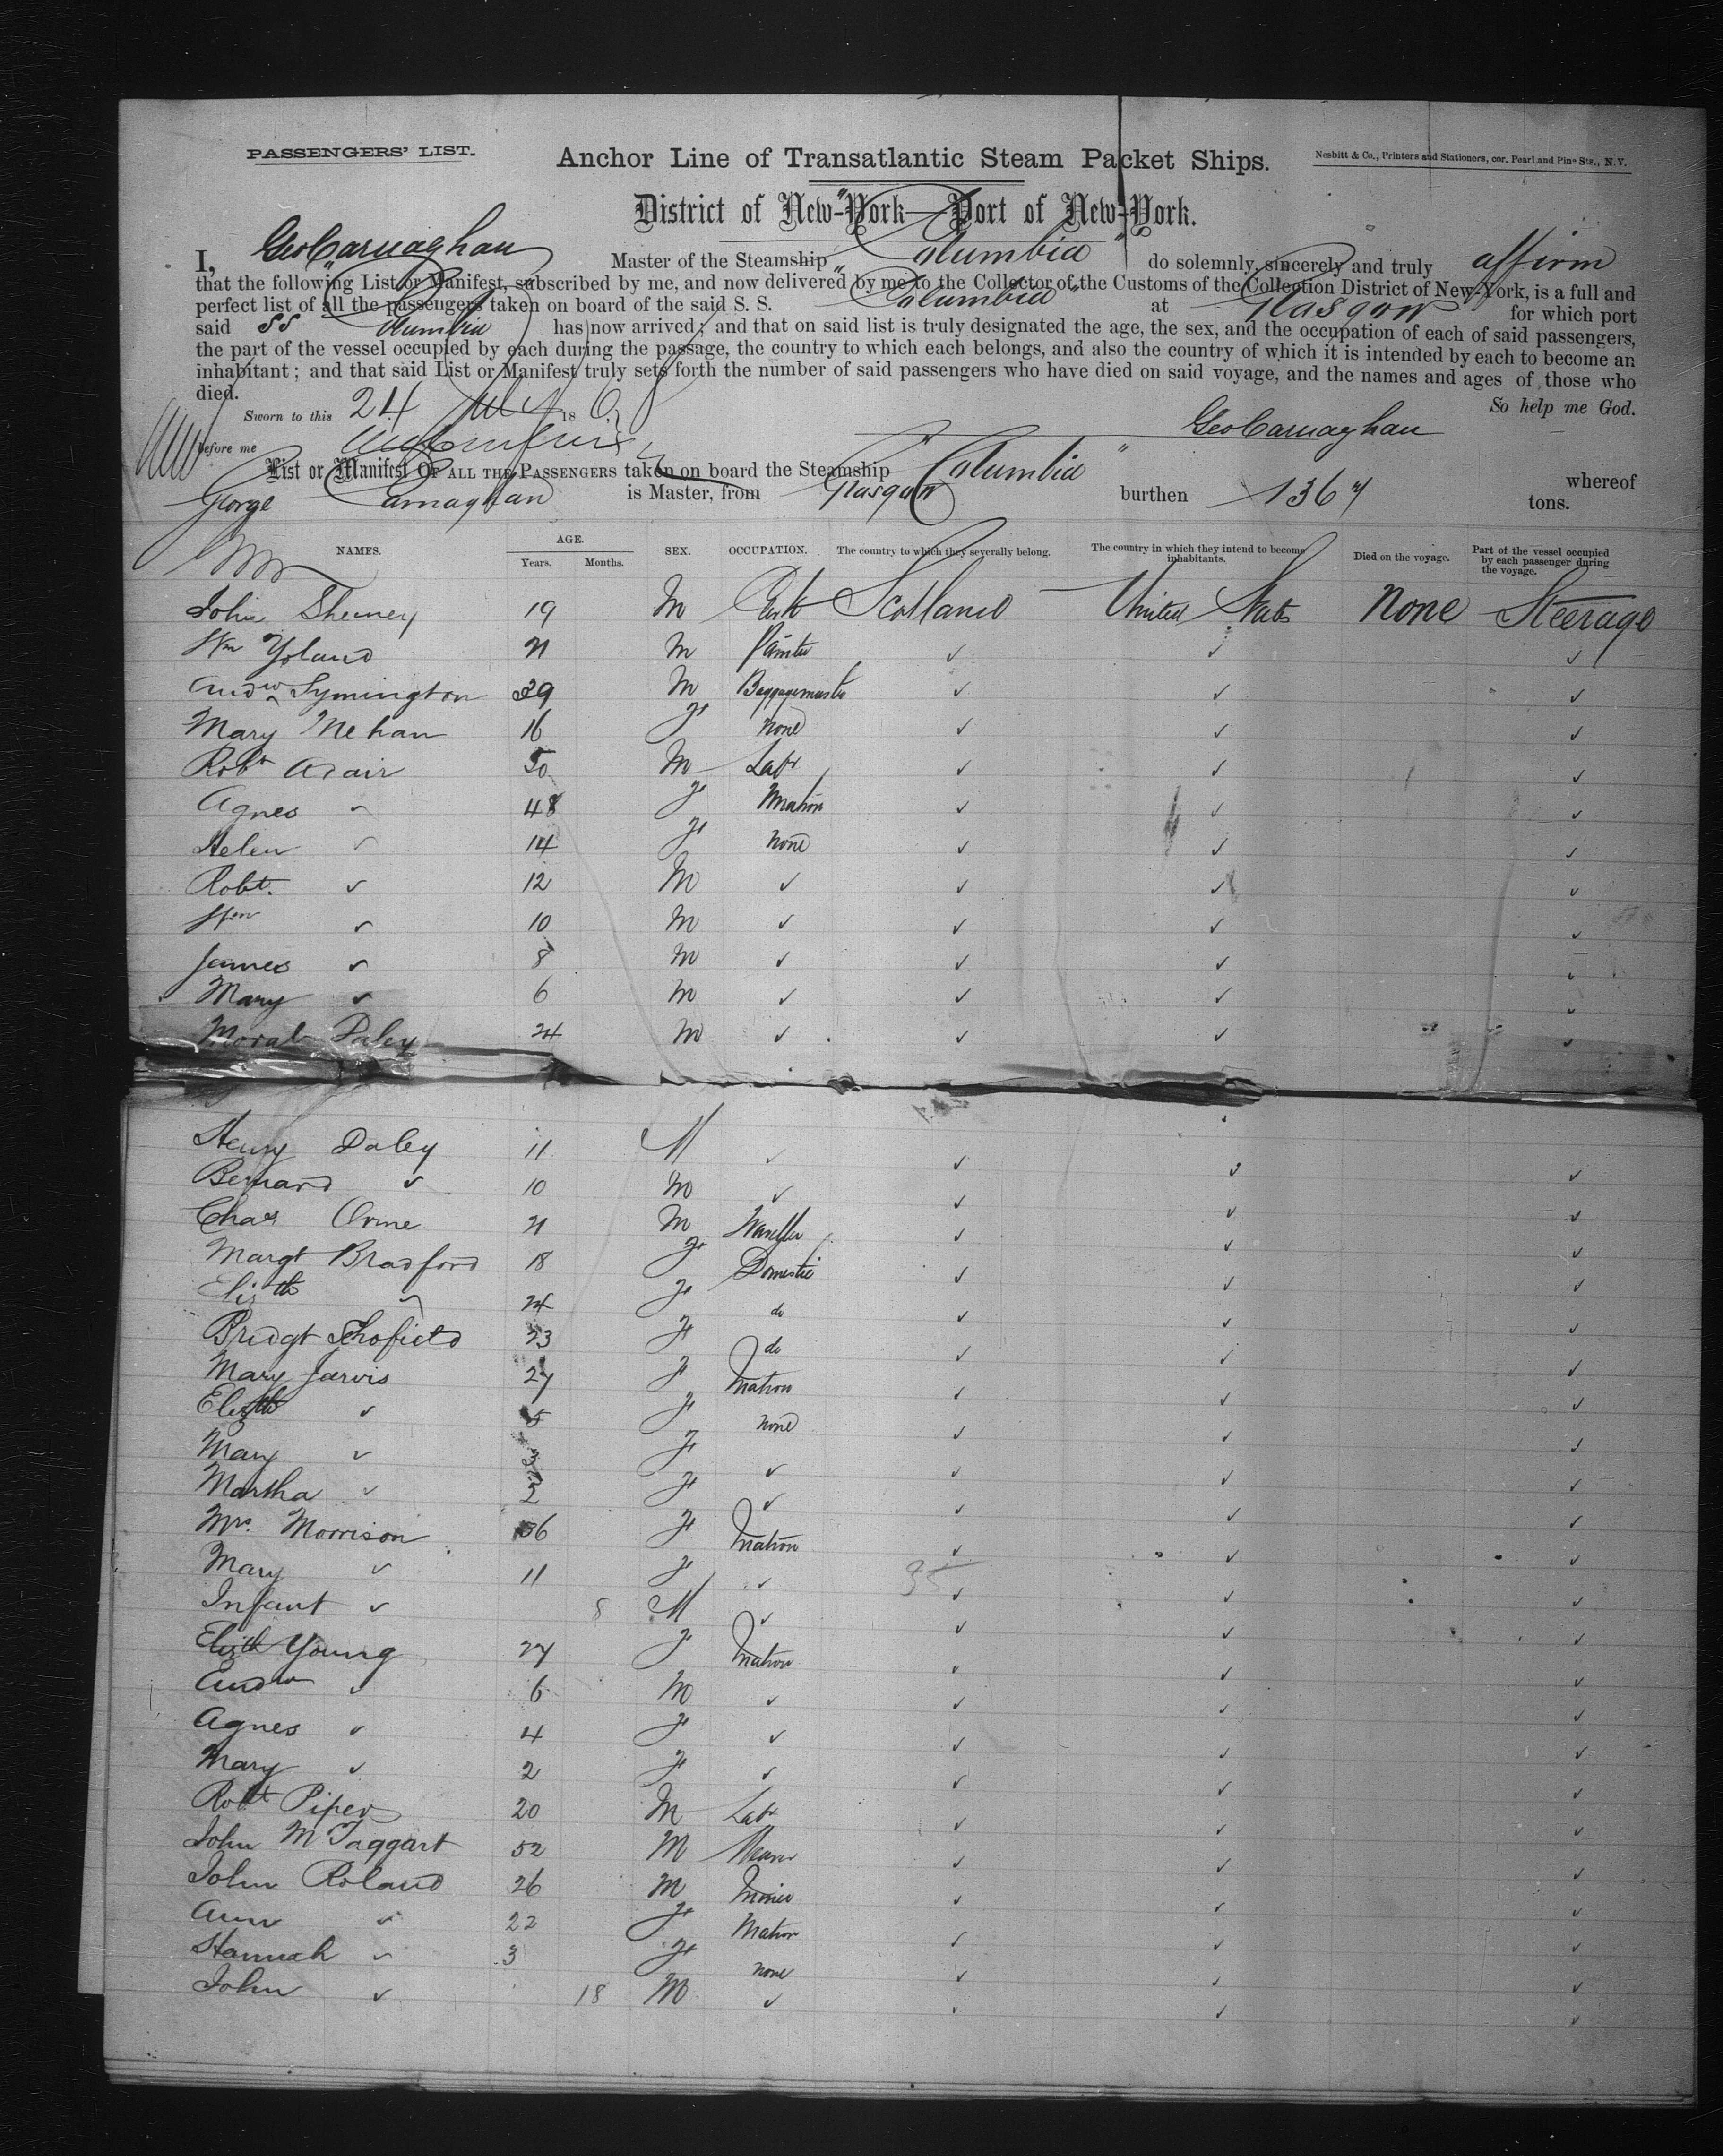 PASSENGERS' LIST.
Anchor Line of Transatlantic Steam Packet Ships.
Nesbitt & Co., Printers and Stationers, cor. Pearl and Pine Sts., N.Y.
District of New-York—Port of New-York.
I, Geo Carnaghan Master of the Steamship "Columbia" do solemnly, sincerely and truly affirm
that the following List or Manifest, subscribed by me, and now delivered by me to the Collector of the Customs of the Collection District of New-York, is a full and
perfect list of all the passengers taken on board of the said S. S. "Columbia" at Glasgow for which port
said SS Columbia has now arrived; and that on said list is truly designated the age, the sex, and the occupation of each of said passengers,
the part of the vessel occupied by each during the passage, the country to which each belongs, and also the country of which it is intended by each to become an
inhabitant; and that said List or Manifest truly sets forth the number of said passengers who have died on said voyage, and the names and ages of those who
died.
So help me God.
Sworn to this 24 July 186
Geo Carnaghan
before me
List or Manifest OF ALL THE PASSENGERS taken on board the Steamship "Columbia" whereof
George Carnaghan is Master, from Glasgow burthen 1367 tons.
NAMES. AGE. Years. Months. SEX. OCCUPATION. The country to which they severally belong. The country in which they intend to become inhabitants. Died on the voyage. Part of the vessel occupied by each passenger during the voyage.
John Sheney 19 M Clerk Scotland United States None Steerage
Wm Yoland 21 M Painter ✓ ✓ ✓
Andw Symington 39 M Baggagemaster ✓ ✓ ✓
Mary Mehan 16 F None ✓ ✓ ✓
Robt Adair 50 M Labr ✓ ✓ ✓
Agnes ✓ 48 F Matron ✓ ✓ ✓
Helen ✓ 14 F None ✓ ✓ ✓
Robt. ✓ 12 M ✓ ✓ ✓ ✓
Wm ✓ 10 M ✓ ✓ ✓ ✓
James ✓ 8 M ✓ ✓ ✓ ✓
Mary ✓ 6 M ✓ ✓ ✓ ✓
Daley 24 M ✓ ✓ ✓ ✓
Henry Daley 11 M ✓ ✓ ✓ ✓
Bernard ✓ 10 M ✓ ✓ ✓ ✓
Chas Orme 21 M ✓ ✓ ✓
Margt Bradford 18 F Domestic ✓ ✓ ✓
Elizth ✓ 24 F do ✓ ✓ ✓
Bridgt Schofield 23 F do ✓ ✓ ✓
Mary Jarvis 27 F Matron ✓ ✓ ✓
Elizth ✓ 5 F None ✓ ✓ ✓
Mary ✓ 3 F ✓ ✓ ✓ ✓
Martha ✓ 2 F ✓ ✓ ✓ ✓
Mrs. Morrison 36 F Matron ✓ ✓ ✓
Mary ✓ 11 F ✓ ✓ ✓ ✓
Infant ✓ 8 M ✓ ✓ ✓ ✓
Elizth Young 27 F Matron ✓ ✓ ✓
Andw ✓ 6 M ✓ ✓ ✓ ✓
Agnes ✓ 4 F ✓ ✓ ✓ ✓
Mary ✓ 2 F ✓ ✓ ✓ ✓
Robt Piper 20 M Labr ✓ ✓ ✓
John McTaggart 52 M ✓ ✓ ✓
John Roland 26 M Miner ✓ ✓ ✓
Ann ✓ 22 F Matron ✓ ✓ ✓
Hannah ✓ 3 F none ✓ ✓ ✓
John ✓ 18 M ✓ ✓ ✓ ✓